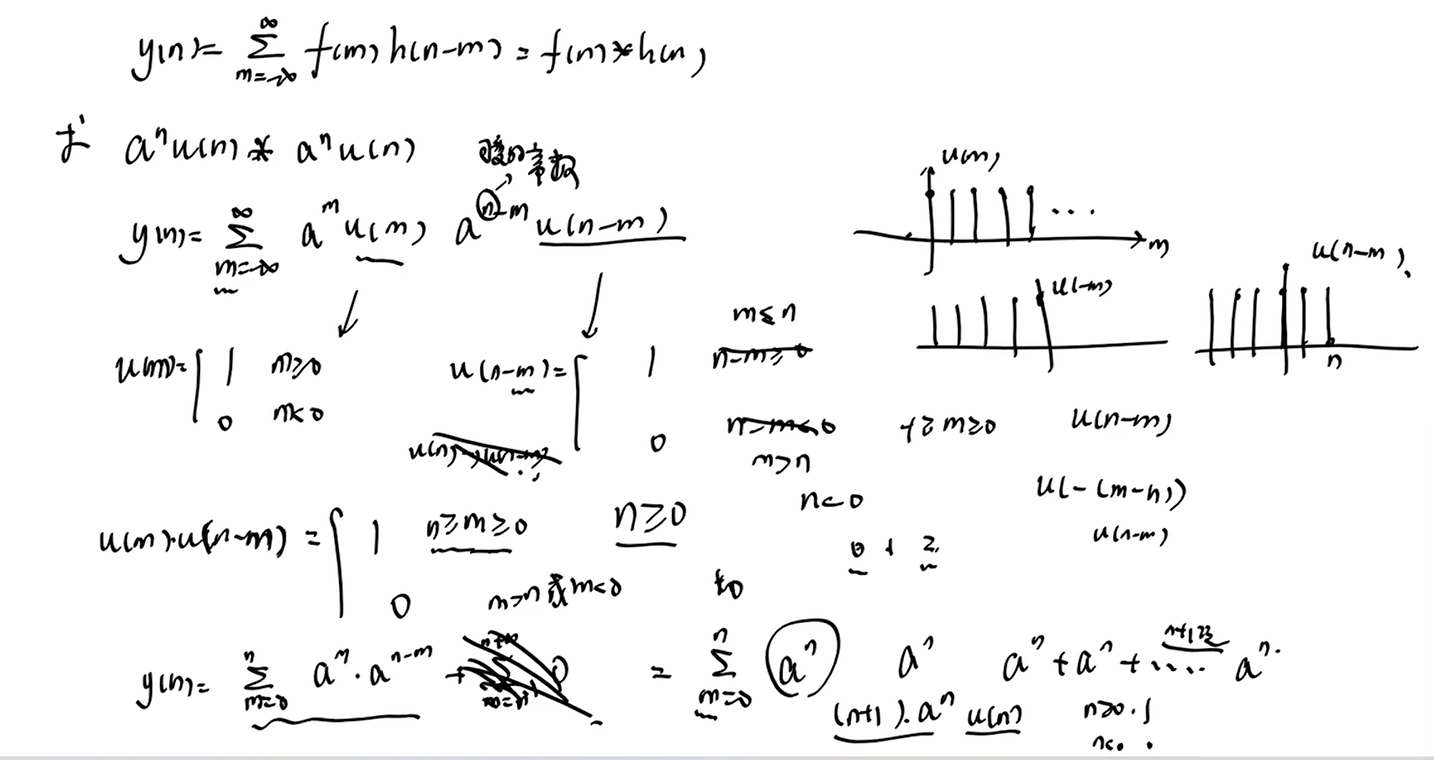 y(n)= ∑_{m=-∞}^{∞} f(m) h(n-m) = f(n)*h(n)
求 aⁿu(n) * aⁿu(n)
常数
y(n)= ∑_{m=-∞}^{∞} a^m u(m) a^{n-m} u(n-m)
u(m)
m
u(-m)
u(n-m)
n
u(m)= { 1 m≥0
0 m<0
u(n-m)= { 1 m≤n
n-m≥0
0 n-m<0
m>n
u(n-m)
n<0
u(-(m-n))
u(n-m)
u(m)·u(n-m) = { 1 n≥m≥0 n≥0
0 m>n或m<0
0 1 2
y(n)= ∑_{m=0}^{n} a^m·a^{n-m} = ∑_{m=0}^{n} aⁿ aⁿ aⁿ+aⁿ+···· aⁿ
(n+1)·aⁿ u(n) n≥0